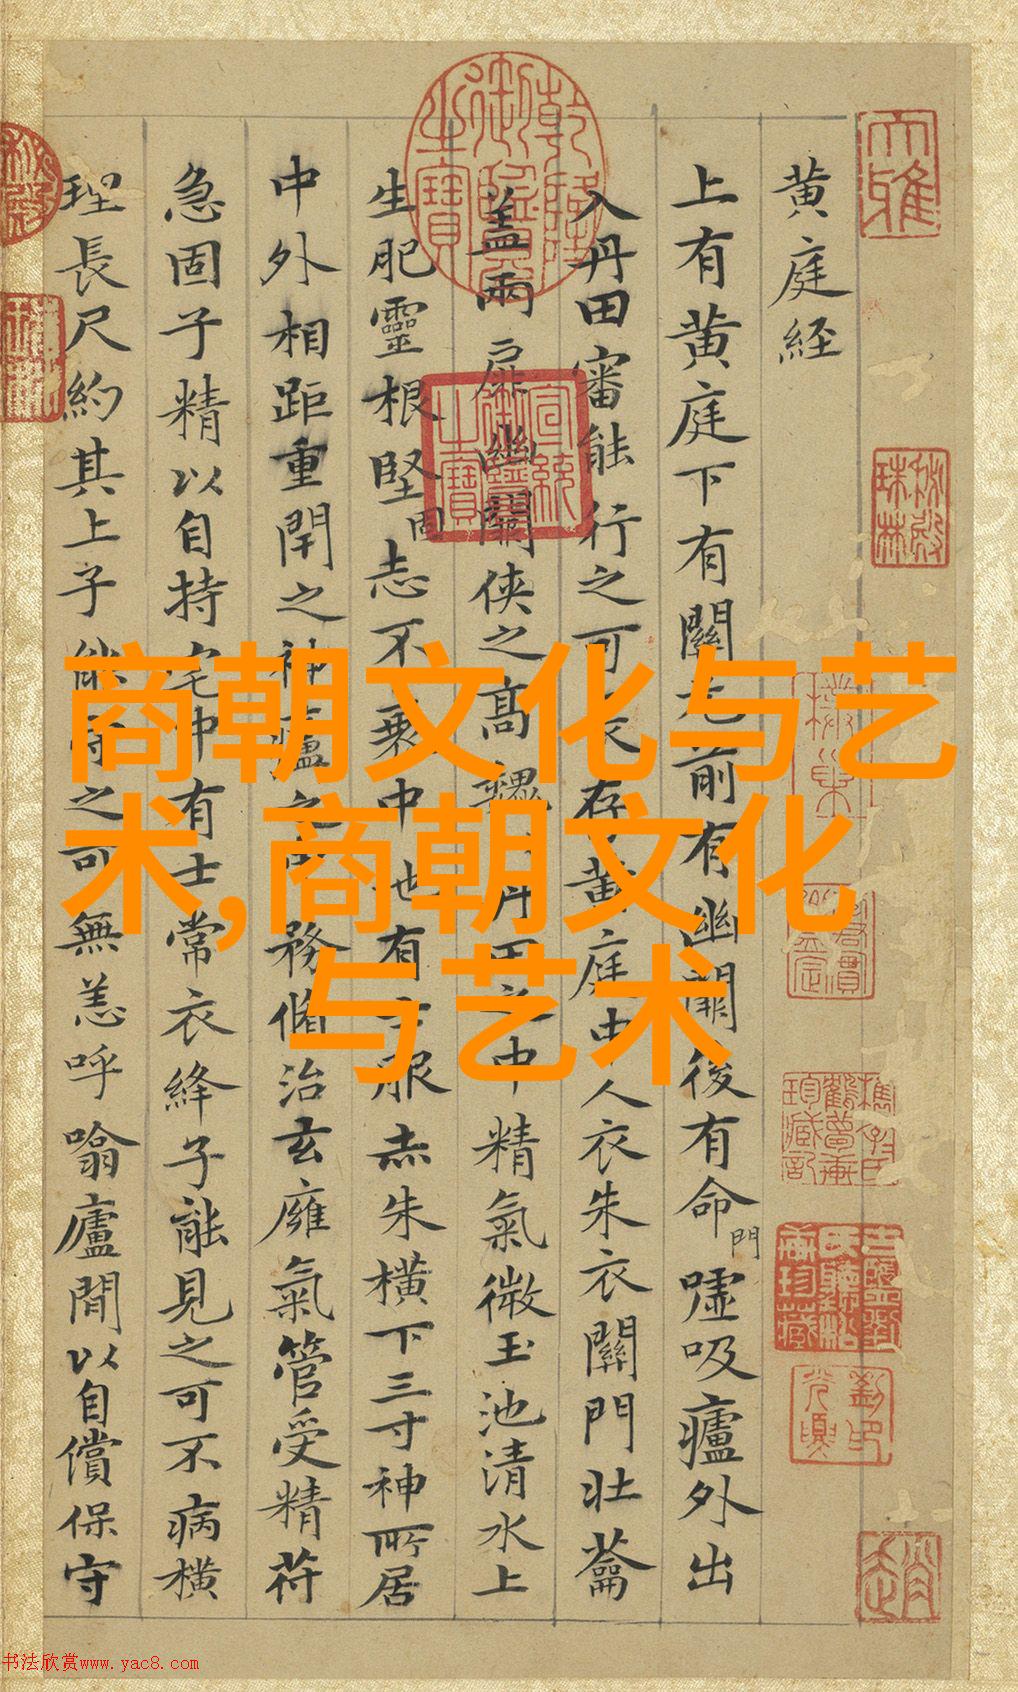 黄庭経
上有黄庭下有關元前有幽關後有命門嘘吸廬外出
入丹田審能行之可長存黄庭中人衣朱衣關門壯蘥
盖兩扉幽關俠之髙巍巍丹田之中精氣微玉池清水上
生肥靈根堅固志不衰中池有士服赤朱横下三寸神所居
中外相距重閇之神廬之中務脩治玄癕氣管受精符
急固子精以自持宅中有士常衣絳子能見之可不病横
理長尺約其上子能守之可無恙呼噏廬間以自償保守
乾隆御覽之寶
宣統御覽之寶
大雅
秘殿珠林
商朝文化与艺
术,商朝文化
与艺术
书法欣赏www.yac8.com